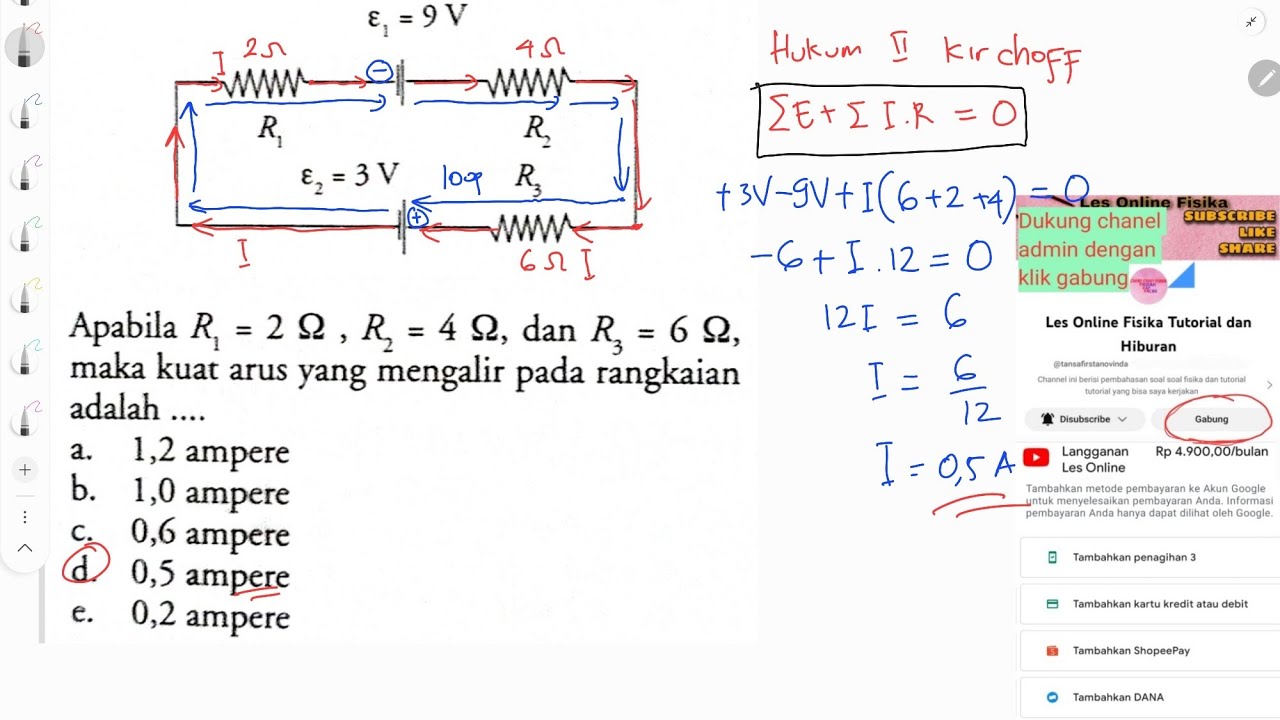 ε₁ = 9 V
I 2Ω
4Ω
−
R₁
R₂
ε₂ = 3 V
loop
R₃
+
I
6Ω I
Apabila R₁ = 2 Ω , R₂ = 4 Ω, dan R₃ = 6 Ω,
maka kuat arus yang mengalir pada rangkaian
adalah ....
a. 1,2 ampere
b. 1,0 ampere
c. 0,6 ampere
d. 0,5 ampere
e. 0,2 ampere
Hukum II Kirchoff
ΣE + Σ I.R = 0
+3V-9V+I(6+2+4) = 0
-6+I.12 = 0
12I = 6
I = 6/12
I = 0,5 A
Les Online Fisika
SUBSCRIBE
LIKE
SHARE
Dukung chanel
admin dengan
klik gabung
Les Online Fisika Tutorial dan
Hiburan
@tansafirstanovinda
Channel ini berisi pembahasan soal soal fisika dan tutorial
tutorial yang bisa saya kerjakan
Disubscribe
Gabung
Langganan Rp 4.900,00/bulan
Les Online
Tambahkan metode pembayaran ke Akun Google
untuk menyelesaikan pembayaran Anda. Informasi
pembayaran Anda hanya dapat dilihat oleh Google.
Tambahkan penagihan 3
Tambahkan kartu kredit atau debit
Tambahkan ShopeePay
Tambahkan DANA